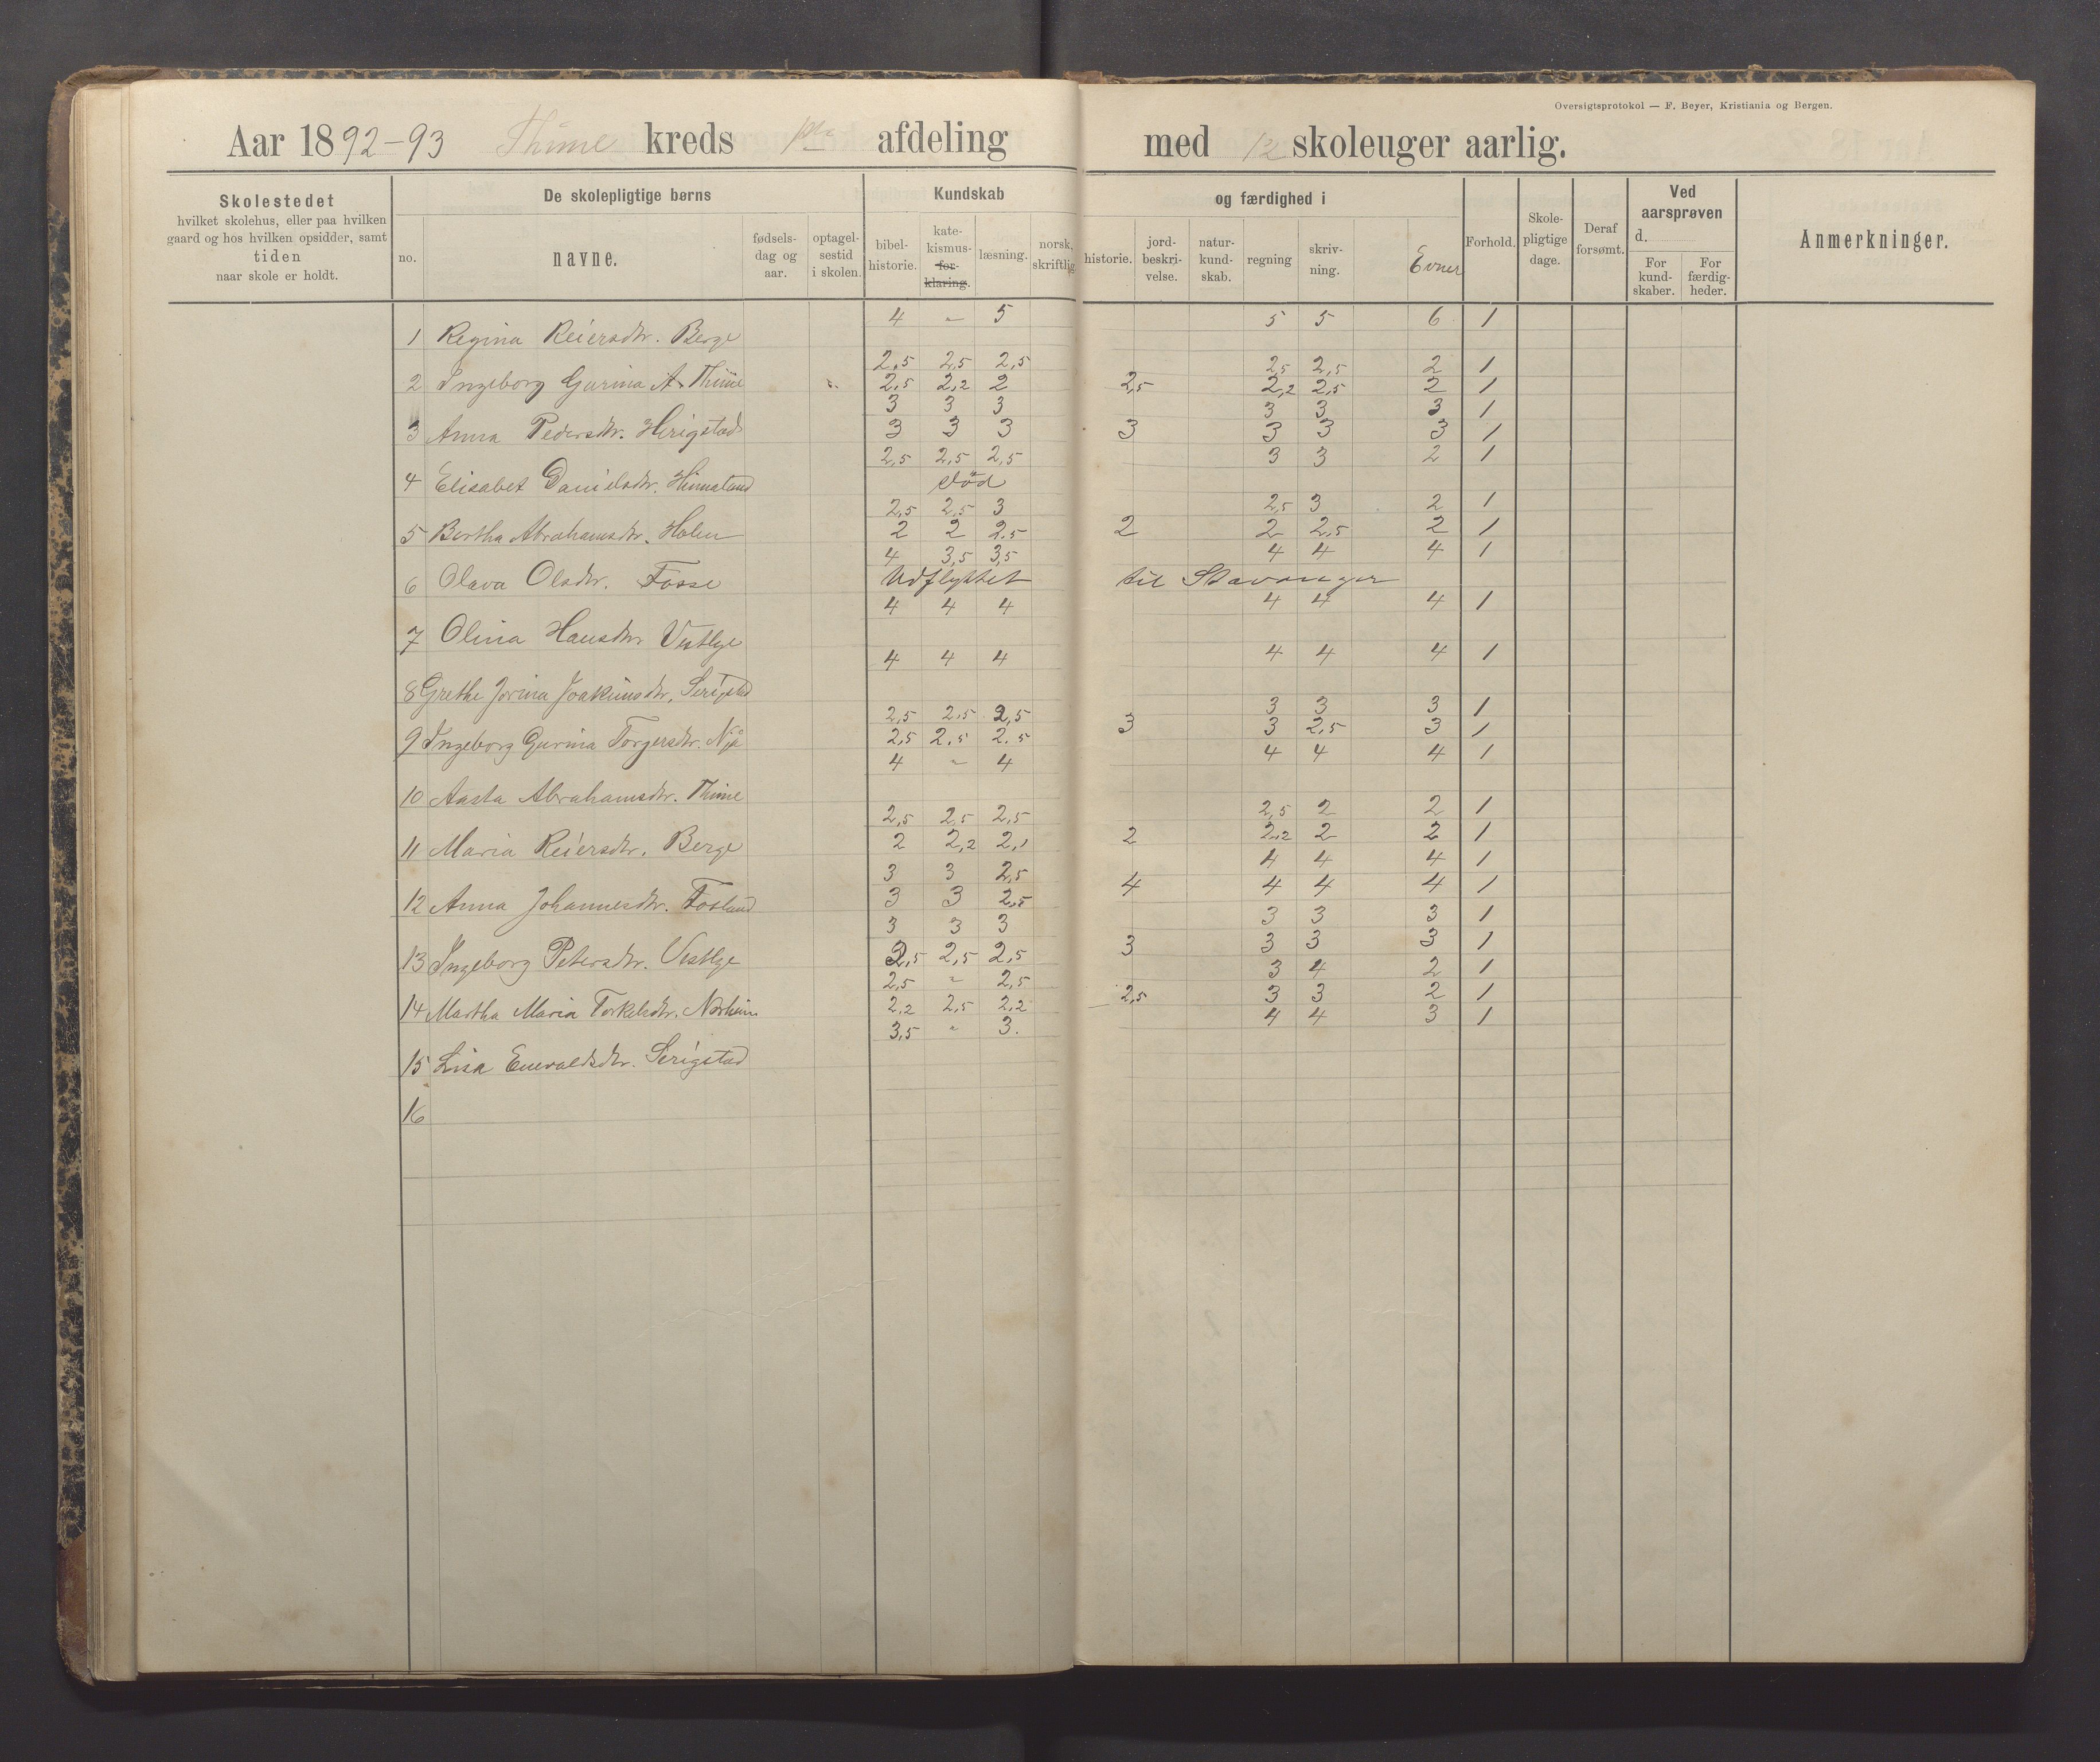 Oversigtsprotokol — F. Beyer, Kristiania og Bergen.
Aar 1892-93 Thime kreds afdeling med 12 skoleuger aarlig.
Skolestedet
hvilket skolehus, eller paa hvilken
gaard og hos hvilken opsidder, samt
tiden
naar skole er holdt.
De skolepligtige børns
no.
navne.
fødsels-
dag og
aar.
optagel-
sestid
i skolen.
Kundskab
bibel-
historie.
kate-
kismus-
for-
klaring.
læsning.
norsk,
skriftlig
og færdighed i
historie.
jord-
beskri-
velse.
natur-
kund-
skab.
regning
skriv-
ning.
Evner
Forhold.
Skole-
pligtige
dage.
Deraf
forsømt.
Ved
aarsprøven
d.
For
kund-
skaber.
For
færdig-
heder.
Anmerkninger.
4 - 5 5 5 6 1
1 Regina Reiersdtr. Berge
2,5 2,5 2,5 2,5 2,5 2 1
2 Ingeborg Gurina A. Thime 2,5 2,2 2 2,5 2,2 2,5 2 1
3 3 3 3 3 3 1
3 Anna Pedersdtr. Herigstad 3 3 3 3 3 3 3 1
2,5 2,5 2,5 3 3 2 1
4 Elisabet Danielsdtr. Himaland død
2,5 2,5 3 2,5 3 2 1
5 Bertha Abrahamsdtr. Holen 2 2 2,5 2 2 2,5 2 1
4 3,5 3,5 4 4 4 1
6 Olava Olsdtr. Fosse Udflyttet til Stavanger
4 4 4 4 4 4 1
7 Olina Hansdtr Vestlye
4 4 4 4 4 4 1
8 Grethe Jorina Joakimsdtr. Serigstad
2,5 2,5 2,5 3 3 3 1
9 Ingeborg Gurina Torgersdtr. Njå 2,5 2,5 2,5 3 3 2,5 3 1
4 - 4 4 4 4 1
10 Aasta Abrahamsdtr. Thime
2,5 2,5 2,5 2,5 2 2 1
11 Maria Reiersdtr. Berge 2 2,2 2,1 2 2,2 2 2 1
3 3 2,5 4 4 4 1
12 Anna Johannesdtr. Fosland 3 3 2,5 4 4 4 4 1
3 3 3 3 3 3 1
13 Ingeborg Petersdtr. Vestlye 2,5 2,5 2,5 3 3 3 3 1
2,5 - 2,5 3 4 2 1
14 Martha Maria Torkelsdtr. Norheim 2,2 2,5 2,2 2,5 3 3 2 1
3,5 - 3. 4 4 3 1
15 Lisa Enevaldsdtr. Serigstad
16